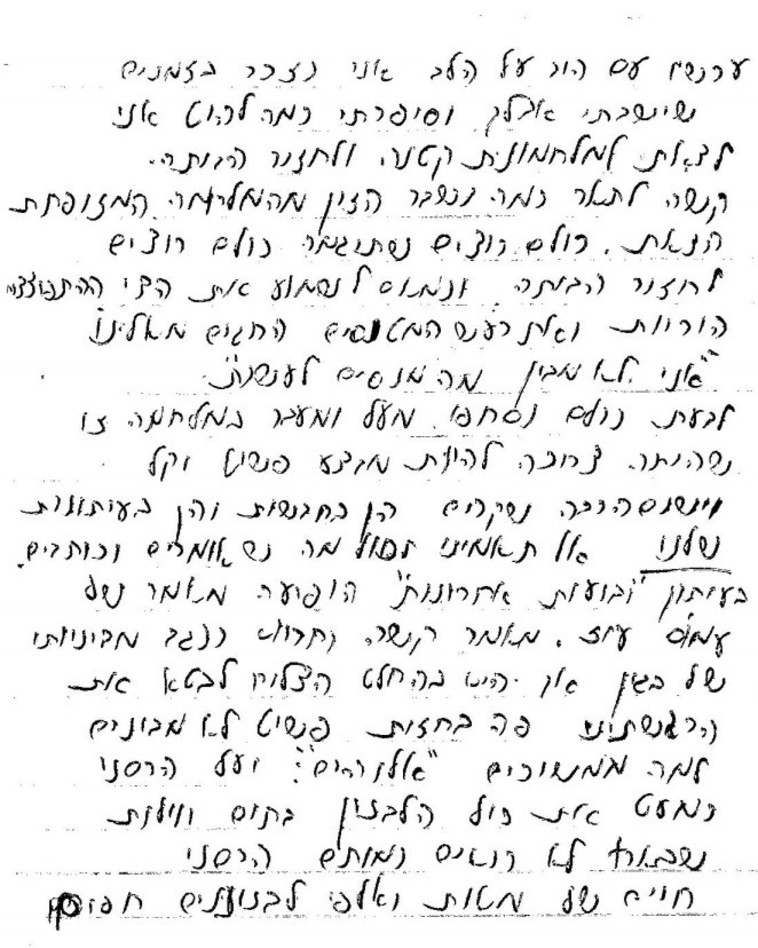 עכשיו עם הזה על הלב אני נזכר בזמנים
שישבתי אצלך וסיפרתי כמה להוט אני
לצאת למלחמונת קטנה ולחזור הביתה.
קשה לתאר כמה נשבר הזין מהמלחמה המזופתת
הזאת. כולם רוצים שתיגמר כולם רוצים
לחזור הביתה ונמאס לשמוע את הדי ההתפוצצויות
היריות ואת רעש המטוסים החגים מעלינו
"אני לא מבין מה מנסים לעשות"
לדעתי כולם נסחפו מעל ומעבר במלחמה זו
שהיתה צריכה להיות מבצע פשוט וקל
וישנם הרבה שקרים הן בחדשות והן בעיתונות
שלנו אל תאמיני לכול מה שאומרים וכותבים.
בעיתון "ידיעות אחרונות" הופיעה מאמר של
עמוס עוז. מאמר קשה וחריף כנגד מדיניותו
של בגין אך הוא בהחלט הצליח לבטא את
הרגשתינו פה בחזית פשוט לא מבינים
למה ממשיכים "אלוהים": ועל הרסנו
כמעט את כול הלבנון בתים ווילות
שבארץ לא רואים כמותם הרסנו
חיים של מאות ואלפי לבנונים חפים